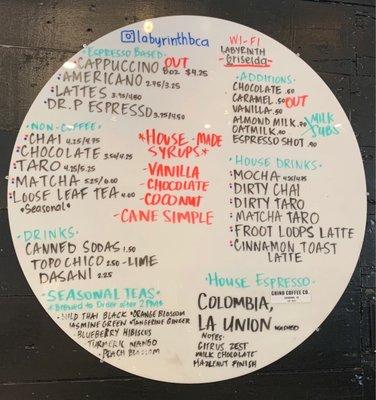 labyrinthbca
ESPRESSO BASED
•CAPPUCCINO OUT
8oz $4.25
•AMERICANO 2.75/3.25
•LATTES 3.95/4.50
•DR.P ESPRESSO 3.75/4.50
NON-COFFEE
•CHAI 4.25/4.75
•CHOCOLATE 3.50/4.25
•TARO 4.25/5.25
•MATCHA 5.25/6.00
•LOOSE LEAF TEA 4.00
*Seasonal*
DRINKS
CANNED SODAS 1.50
TOPO CHICO 2.50 -LIME
DASANI 2.25
SEASONAL TEAS
*Brewed to Order after 2PM*
•WILD THAI BLACK •ORANGE BLOSSOM
•JASMINE GREEN •TANGERINE GINGER
•BLUEBERRY HIBISCUS
•TURMERIC MANGO
•PEACH BLOSSOM
*HOUSE-MADE
SYRUPS*
-VANILLA
-CHOCOLATE
-COCONUT
-CANE SIMPLE
WI-FI
LABYRINTH
-Griselda-
ADDITIONS
CHOCOLATE .50
CARAMEL .50 OUT
VANILLA .50
ALMOND MILK .90
OATMILK .90
MILK
SUBS
ESPRESSO SHOT .90
HOUSE DRINKS
•MOCHA 4.25/4.75
•DIRTY CHAI
•DIRTY TARO
•MATCHA TARO
•FROOT LOOPS LATTE
•CINNAMON TOAST
LATTE
•HOUSE ESPRESSO
GRIND COFFEE CO.
COLOMBIA,
LA UNION WASHED
NOTES:
CITRUS ZEST
MILK CHOCOLATE
HAZELNUT FINISH